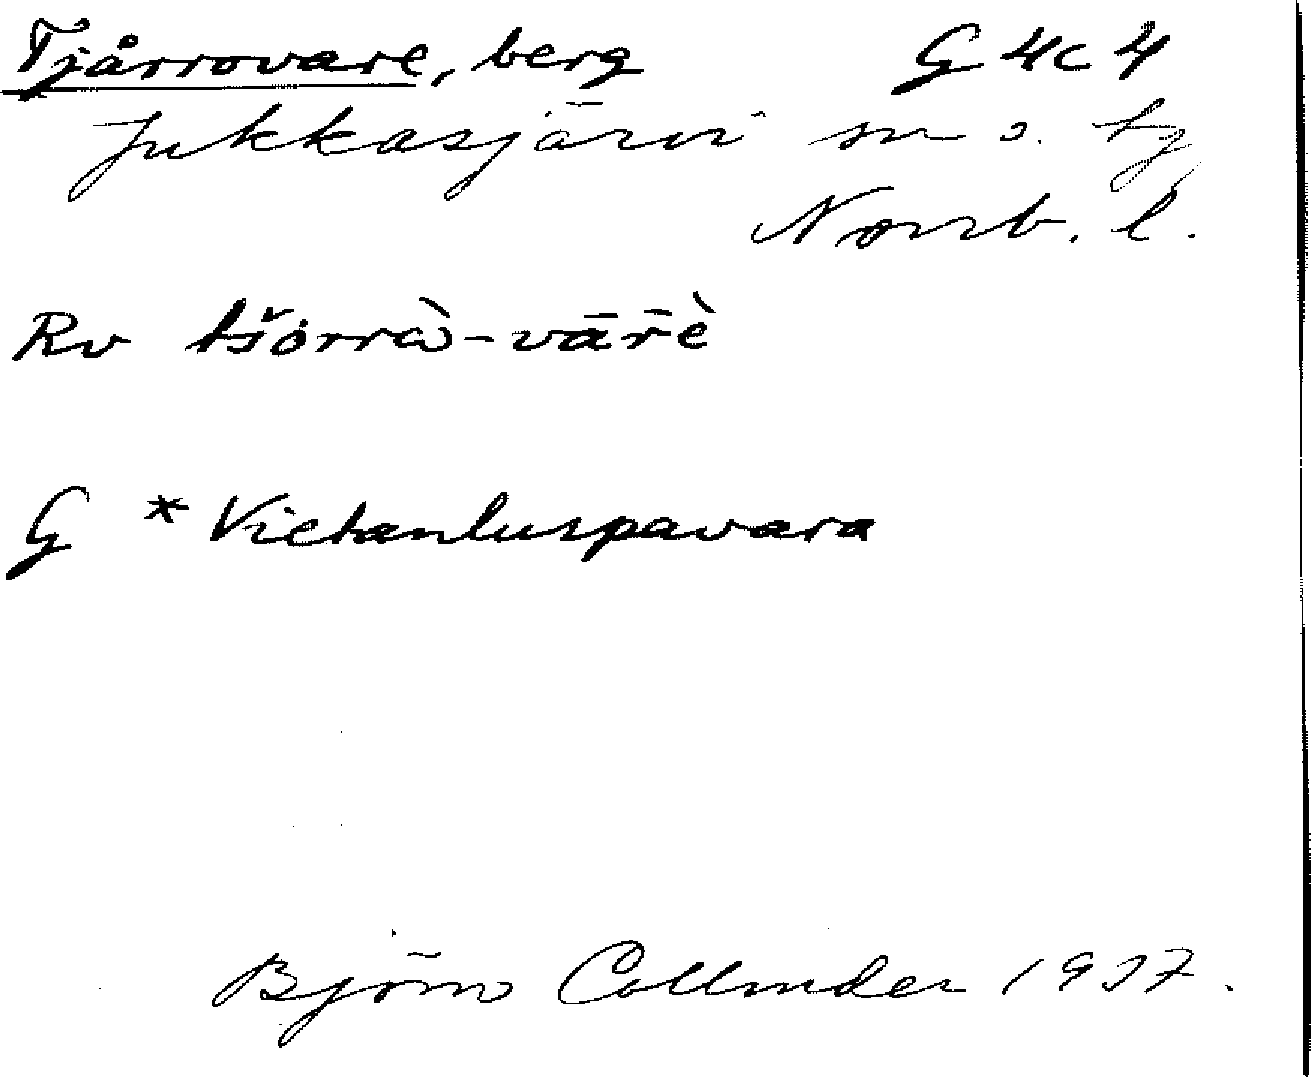 Tjårrovare, berg G 4c 4
Jukkasjärvi sn o. tg
Norrb. l.
Rv tšorrɑ̀-vārè
G *Vietanluspavara
Björn Collinder 1937.